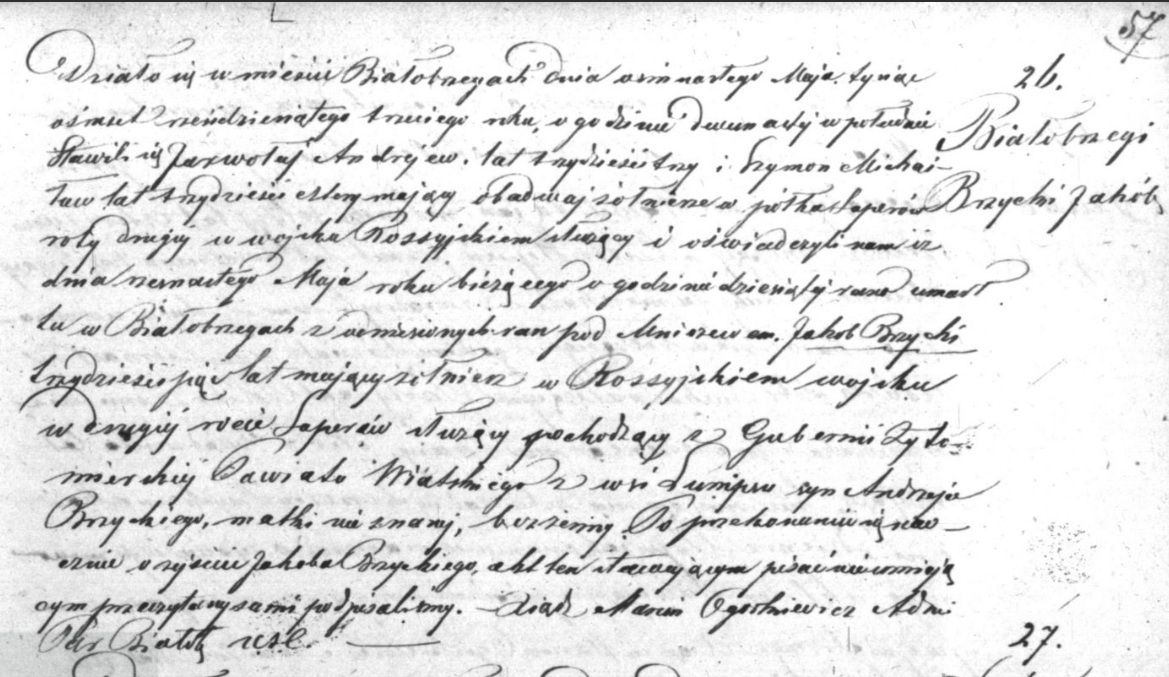 57
Działo się w mieście Białobrzegach dnia osimnastego Maja, tysiąc
26.
ośmset sześdziesiątego trzeciego roku, o godzinie dwunastej w południe
Białobrzegi
Stawili się Jarwołaj Andrejew, lat trzydzieści trzy i Szymon Michai-
łow lat trzydzieści cztery mający obadwaj żołnierze w półku saperów
Brzycki Jakób
roty drugiej w wojsku Rossyjskiem służący i oświadczyli nam iż
dnia szesnastego Maja roku bieżącego o godzinie dziesiątej rano umarł
tu w Białobrzegach z odniesionych ran pod Mniszewem, Jakob Brzycki
trzydzieści pięć lat mający żołnierz w Rossyjskiem wojsku
w drugiej rocie Saperów służący pochodzący z Gubernii Żyto-
mierskiej Powiatu z wsi syn Andrzeja
Brzyckiego, matki nie znanej, bezżenny. Po przekonaniu się nao-
cznie o zejściu Jakoba Brzyckiego, akt ten stawającym pisać nie umieją
cym przeczytany sami podpisaliśmy. – Ksiądz Marcin Adm:
Par Białob u.s.c.
27.